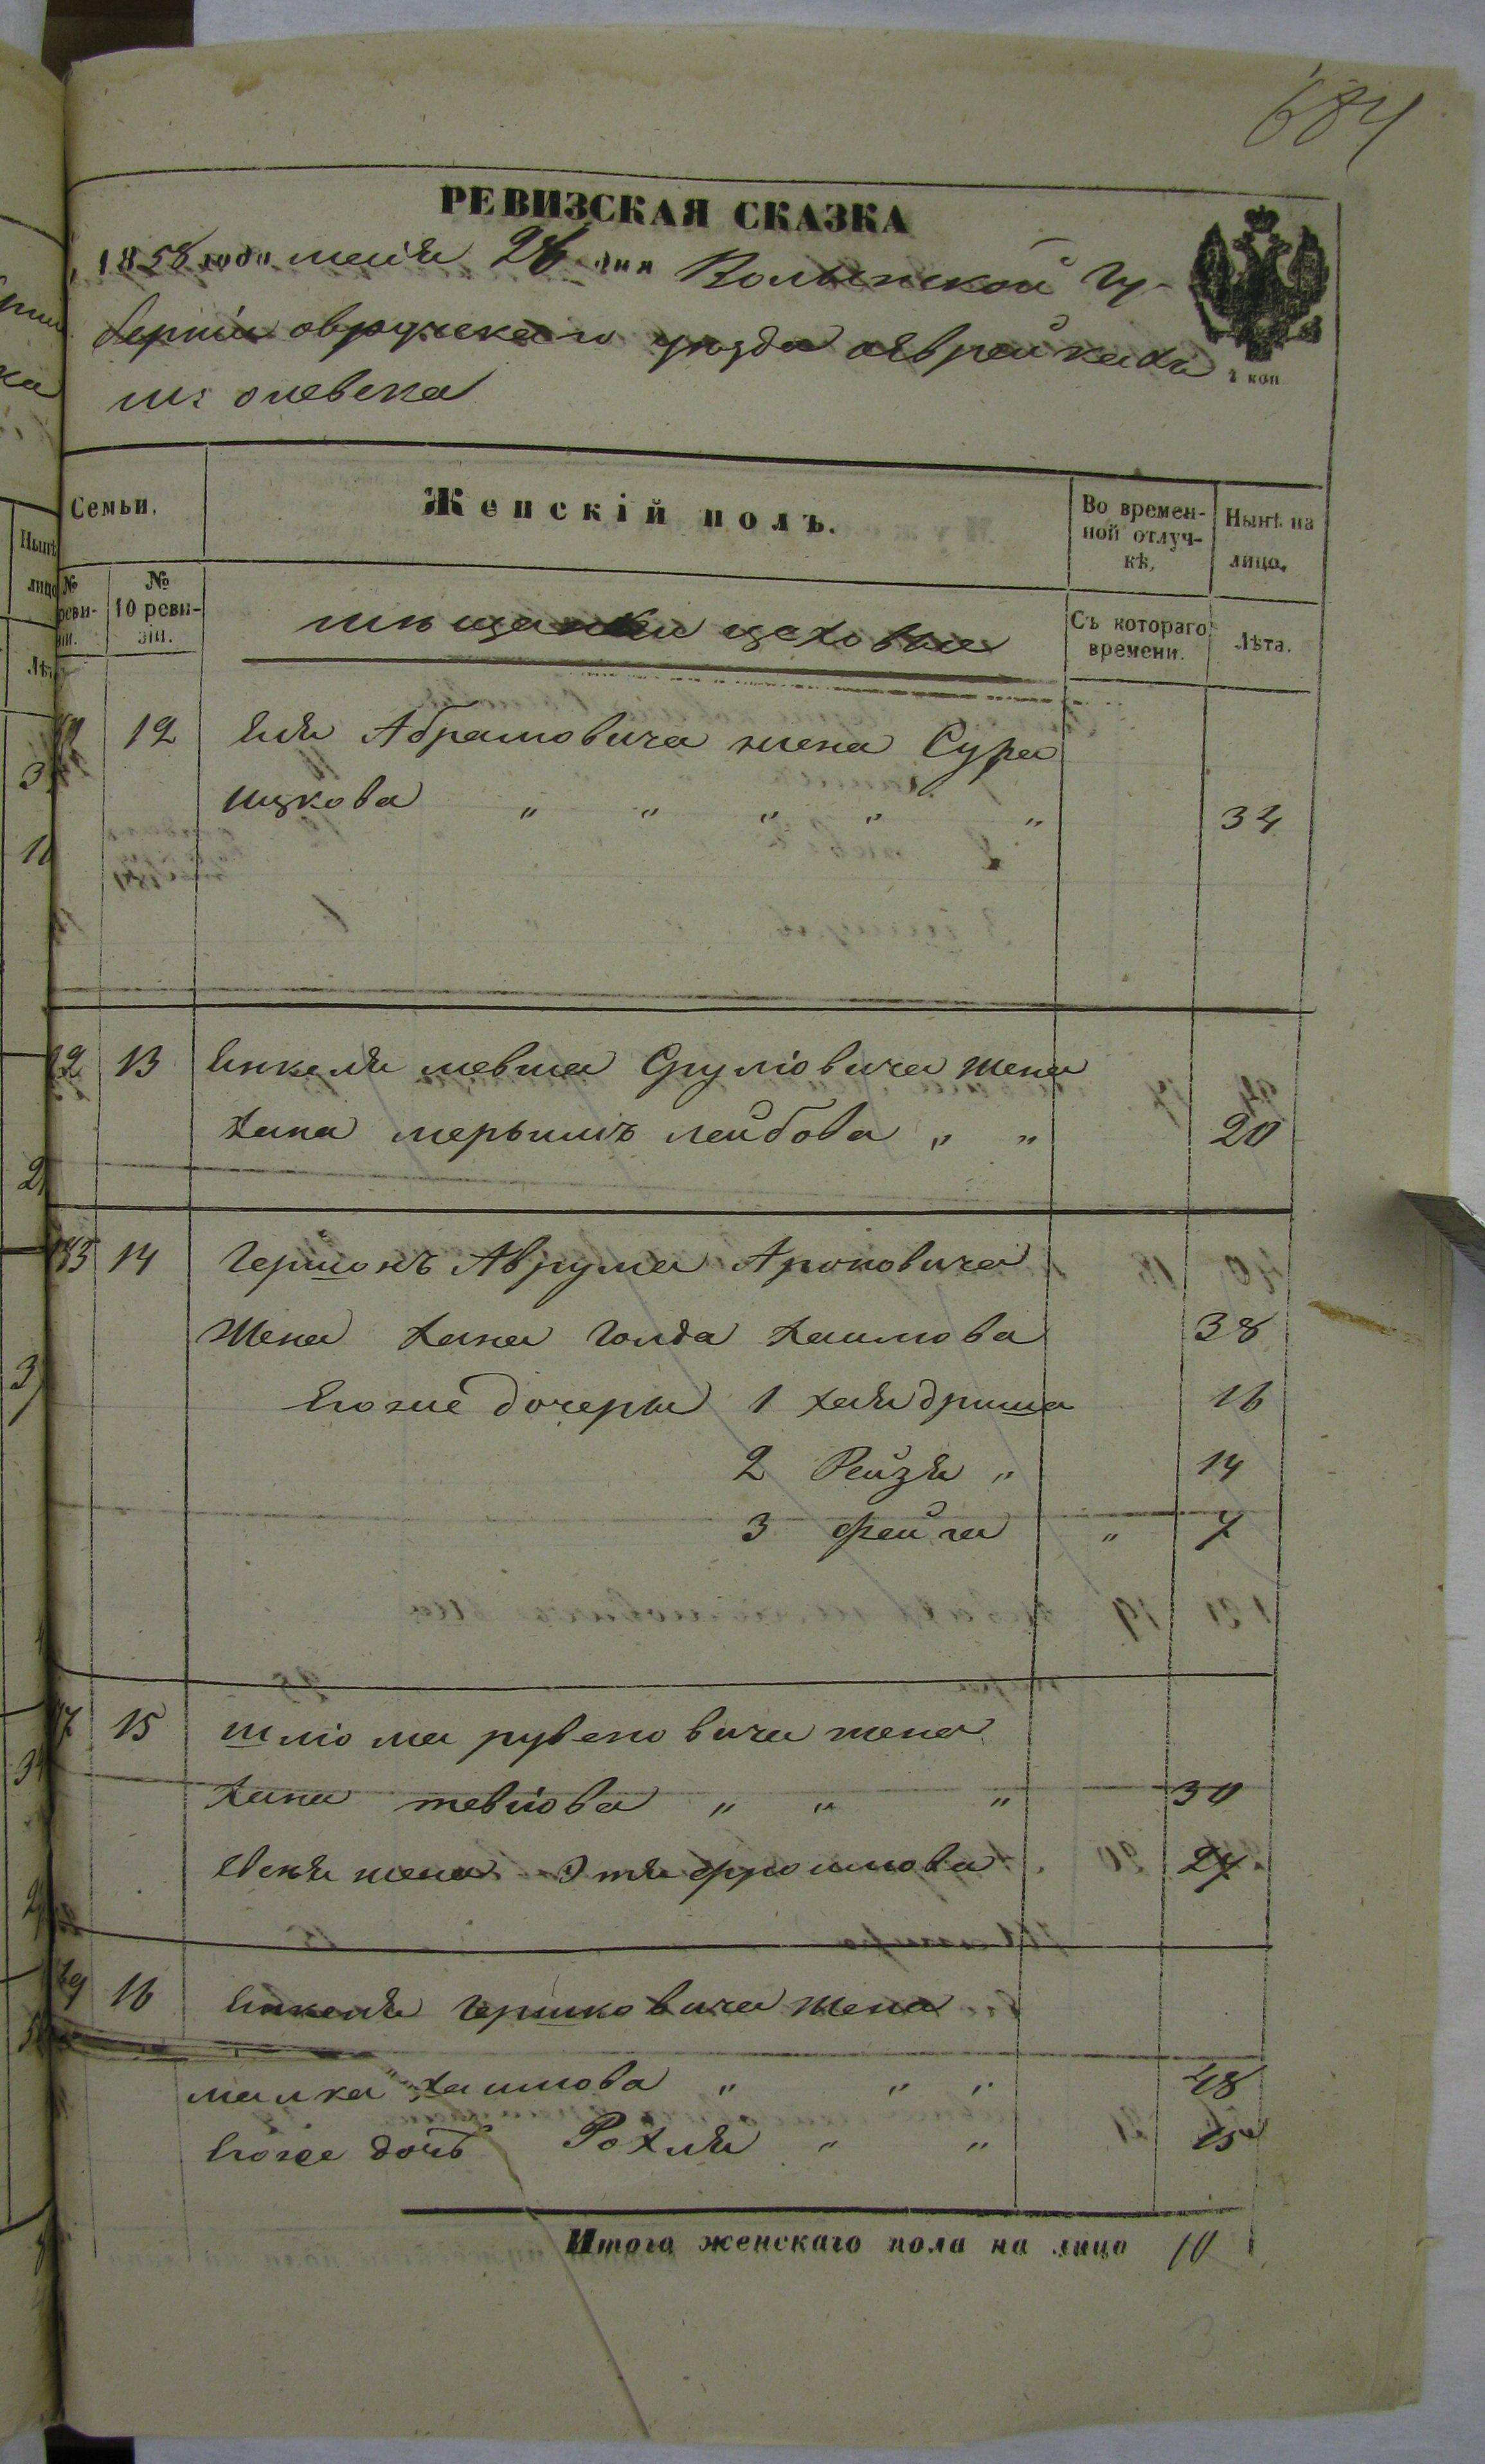 684
РЕВИЗСКАЯ СКАЗКА
1858 года маія 26 дня Волынской Гу-
берніи овручскаго уѣзда оеврейкахъ
м: олевска
2 коп
Семьи.
Женскій полъ.
Во времен-
ной отлуч-
кѣ,
Нынѣ на
лицо.
№
реви-
зіи.
№
10 реви-
зіи.
мѣщанки цеховые
Съ котораго
времени.
Лѣта.
12 Еля Абрамовича жена Сура
ицкова " " " " " 34
13 Енкеля мевша Сруліовича Жена
хана мерьимъ лейбова " " 20
14 Гершонъ Аврума Ароновича
Жена хана голда хаимова 38
Егоже дочеры 1 хая дриша 16
2 Рейзя " 14
3 фейга " 7
15 шліома рувеновича жена
хана тевіова " " " 30
жена Этя фроимова 27
16 Енкеля Гершковича Жена
малка хаимова " " " 48
Егоже дочь Рохля " " 15
Итого женскаго пола на лицо 10
3